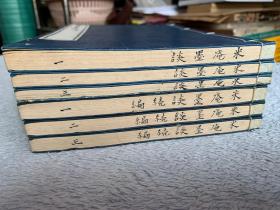 米庵墨談 一
米庵墨談 二
米庵墨談 三
米庵墨談續編 一
米庵墨談續編 二
米庵墨談續編 三